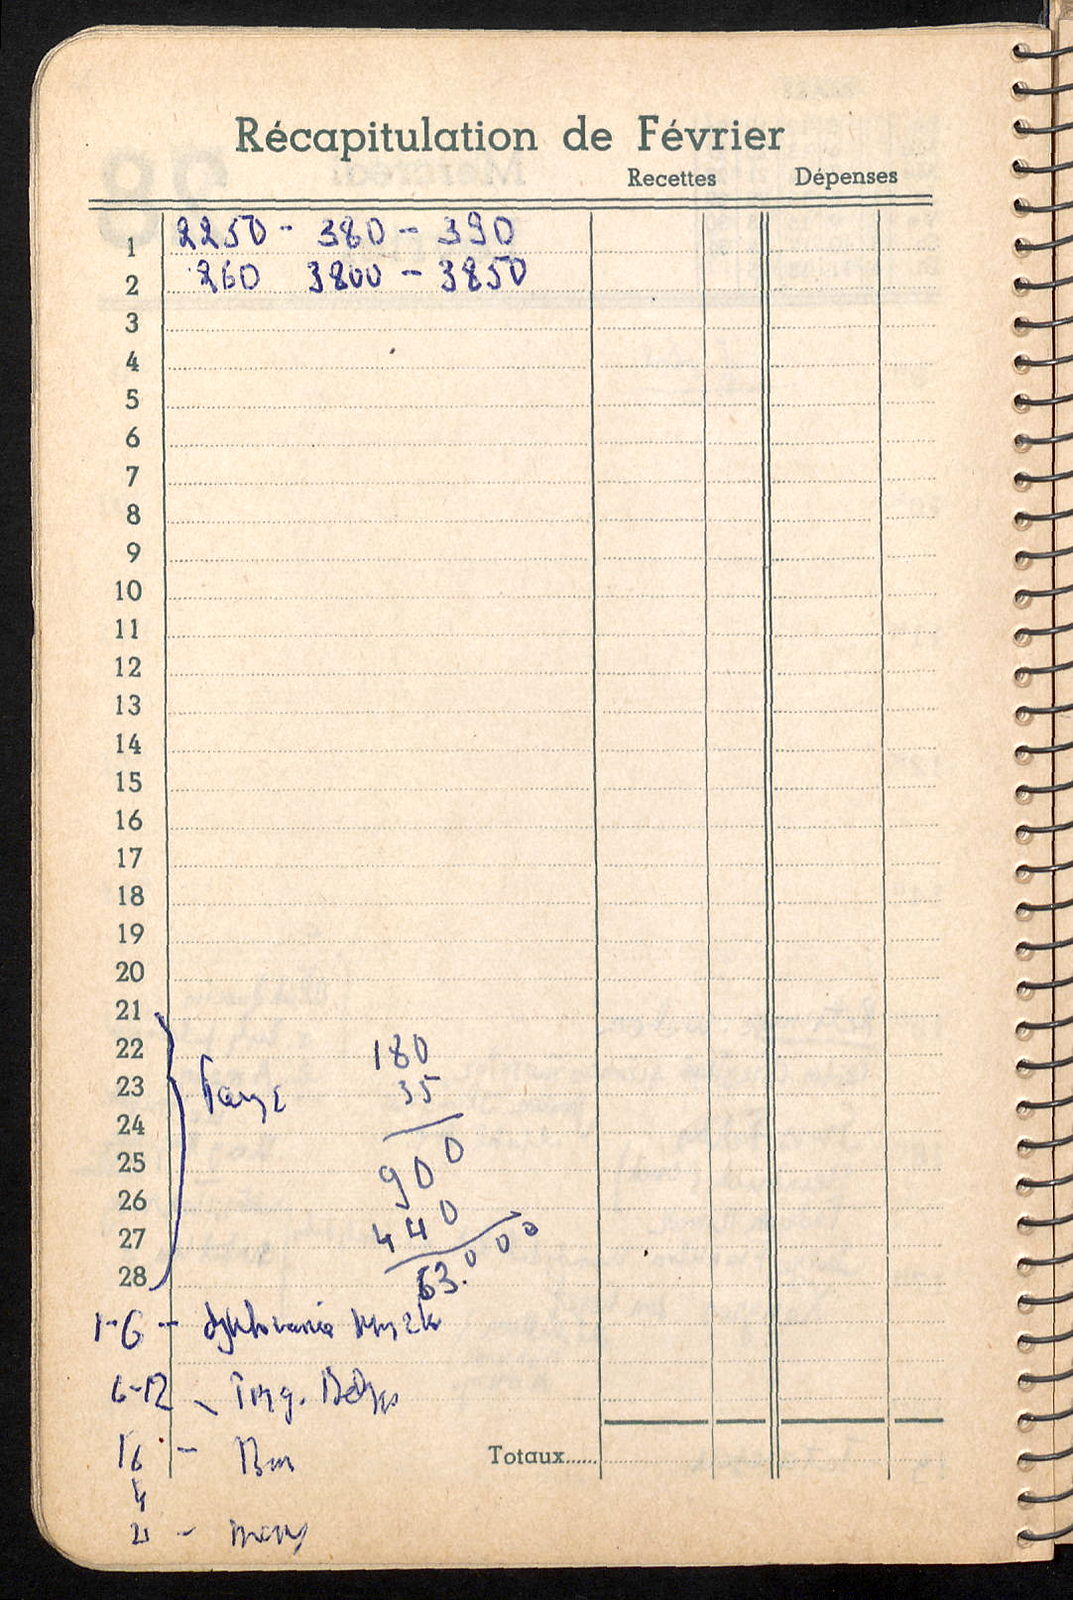 Récapitulation de Février
Recettes Dépenses
1 2250 - 380 - 390
2 260 3800 - 3850
3
4
5
6
7
8
9
10
11
12
13
14
15
16
17
18
19
20
21
22 180
23 35
24
25 900
26
27 440
28 63.000
1-6 -
6-12 -
16 -
Totaux......